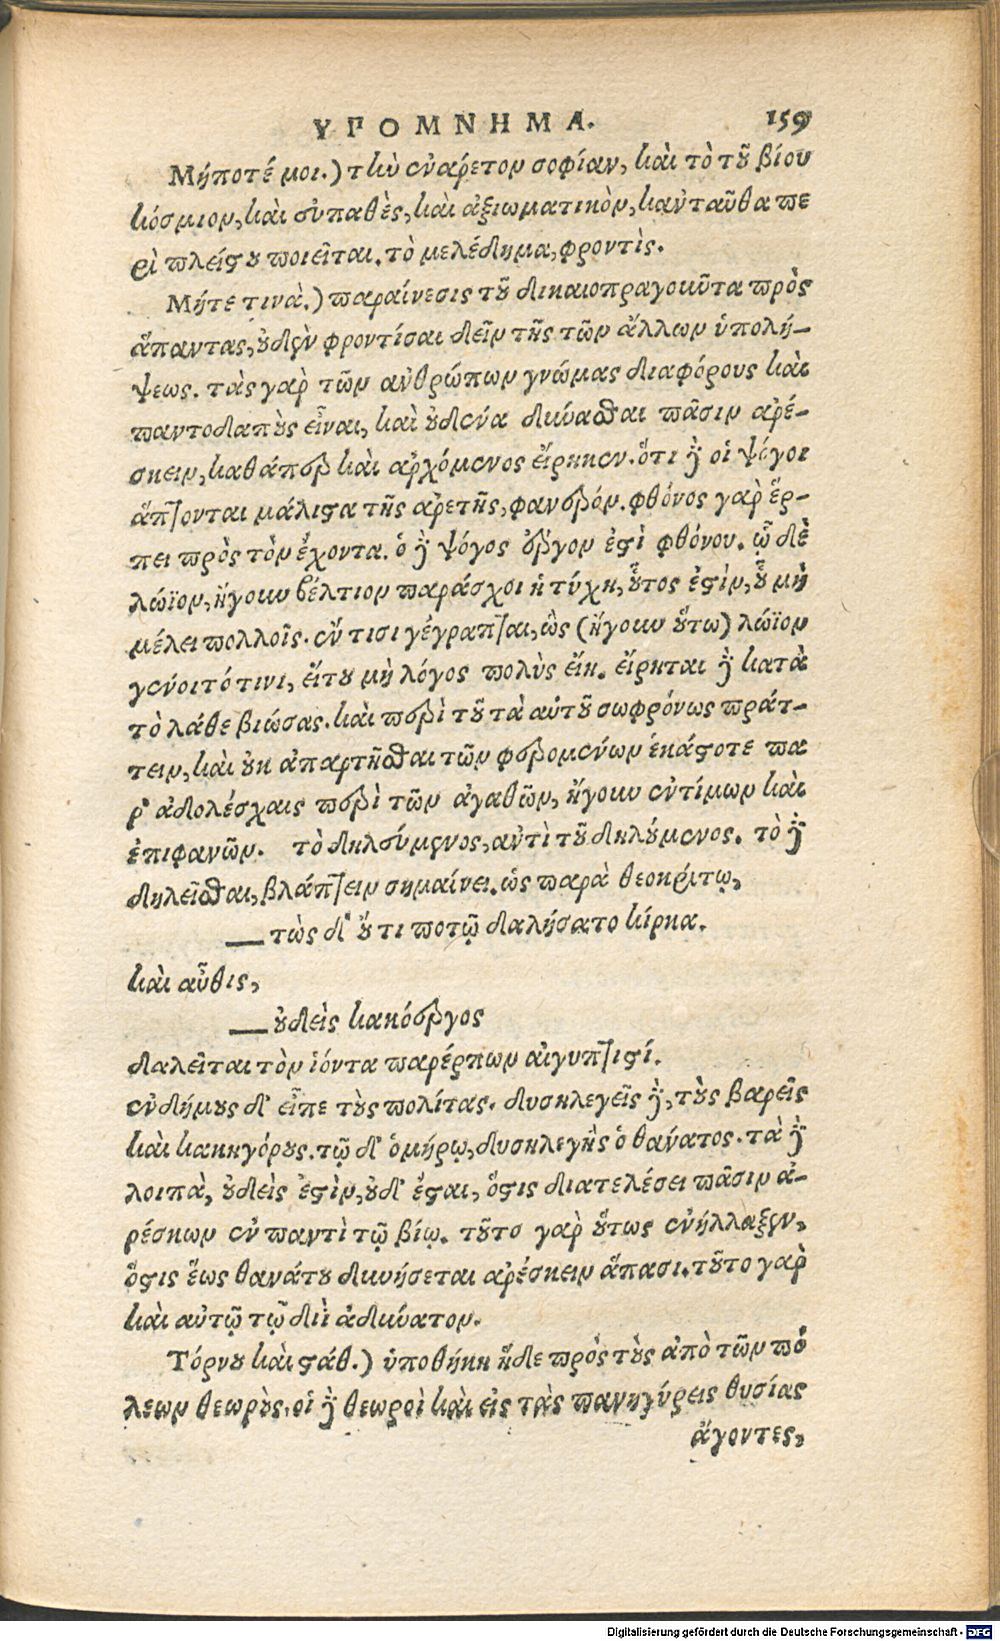 ΥΠΟΜΝΗΜΑ. 159
Μήποτέ μοι.) τὴν ἐνάρετον σοφίαν, καὶ τὸ τοῦ βίου
κόσμιον, καὶ εὐπαθὲς, καὶ ἀξιωματικὸν, κἀνταῦθα πε
ρὶ πλείστου ποιεῖται. τὸ μελέδημα, φροντίς.
Μήτε τινὰ.) παραίνεσις τοῦ δικαιοπραγοῦντα πρὸς
ἅπαντας, οὐδὲν φροντίσαι δεῖν τῆς τῶν ἄλλων ὑπολή-
ψεως. τὰς γὰρ τῶν ἀνθρώπων γνώμας διαφόρους καὶ
παντοδαποὺς εἶναι, καὶ οὐδένα δύνασθαι πᾶσιν ἀρέ-
σκειν, καθάπερ καὶ ἀρχόμενος εἴρηκεν. ὅτι δὲ οἱ ψόγοι
ἅπτονται μάλιστα τῆς ἀρετῆς, φανερόν. φθόνος γὰρ ἕρ-
πει πρὸς τὸν ἔχοντα. ὁ δὲ ψόγος ἔργον ἐστὶ φθόνου. ᾧ δὲ
λώϊον, ἤγουν βέλτιον παράσχοι ἡ τύχη, οὗτος ἐστὶν, οὗ μὴ
μέλει πολλοῖς. ἔν τισι γέγραπται, ὣς (ἤγουν οὕτω) λώϊον
γένοιτό τινι, εἴ του μὴ λόγος πολὺς εἴη. εἴρηται δὲ κατὰ
τὸ λάθε βιώσας. καὶ περὶ τοῦ τὰ αὑτοῦ σωφρόνως πράτ-
τειν, καὶ οὐκ ἀπαρτῆσθαι τῶν φερομένων ἑκάστοτε πα
ρ' ἀδολέσχαις περὶ τῶν ἀγαθῶν, ἤγουν ἐντίμων καὶ
ἐπιφανῶν. τὸ δηλεύμενος, ἀντὶ τοῦ δηλούμενος. τὸ δὲ
δηλεῖσθαι, βλάπτειν σημαίνει. ὡς παρὰ θεοκρίτῳ,
— τὼς δ' οὔτι ποτῷ δαλήσατο κίρκα.
καὶ αὖθις,
— οὐδεὶς κακόεργος
δαλεῖται τὸν ἰόντα παρέρπων αἰγυπτιστί.
ἐνδήμους δ' εἶπε τοὺς πολίτας. δυσηλεγεῖς δὲ, τοὺς βαρεῖς
καὶ κακηγόρους. τῷ δ' ὁμήρῳ, δυσηλεγὴς ὁ θάνατος. τὰ δὲ
λοιπὰ, οὐδεὶς ἐστὶν, οὐδ' ἔσται, ὅστις διατελέσει πᾶσιν ἀ-
ρέσκων ἐν παντὶ τῷ βίῳ. τοῦτο γὰρ οὕτως ἐνήλλαξεν,
ὅστις ἕως θανάτου δυνήσεται ἀρέσκειν ἅπασι. τοῦτο γὰρ
καὶ αὐτῷ τῷ διῒ ἀδύνατον.
Τόρνου καὶ στάθ.) ὑποθήκη ἥδε πρὸς τοὺς ἀπὸ τῶν πό
λεων θεωροὺς. οἱ δὲ θεωροὶ καὶ εἰς τὰς πανηγύρεις θυσίας
ἄγοντες,
Digitalisierung gefördert durch die Deutsche Forschungsgemeinschaft - DFG